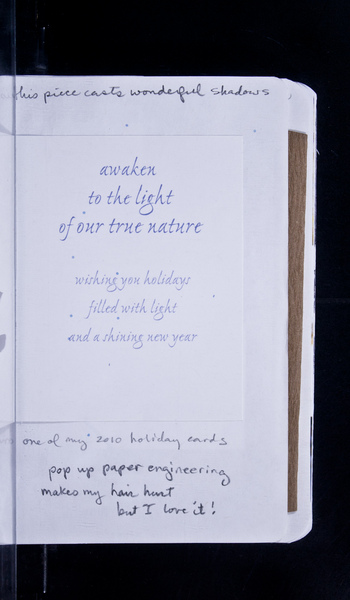 this piece casts wonderful shadows
awaken
to the light
of our true nature
wishing you holidays
filled with light
and a shining new year
one of my 2010 holiday cards
pop up paper engineering
makes my hair hurt
but I love it!